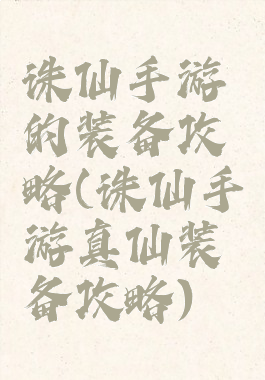 诛仙手游
的装备攻
略(诛仙手
游真仙装
备攻略)